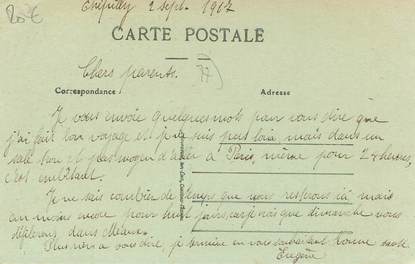 20€
2 Sept. 1917
CARTE POSTALE
Chers parents.
77
Correspondance
Adresse
Je vous envoie quelques mots pour vous dire que
j'ai fait bon voyage et je suis pas loin mais dans un
sale trou et pas moyen d'aller à Paris même pour 24 heures,
c'est embêtant.
Je ne sais combien de temps que nous resterons ici mais
au moins encore pour huit jours, car je sais que dimanche nous
défilerons dans
Plus rien à vous dire, je termine en vous souhaitant bonne santé
Eugène